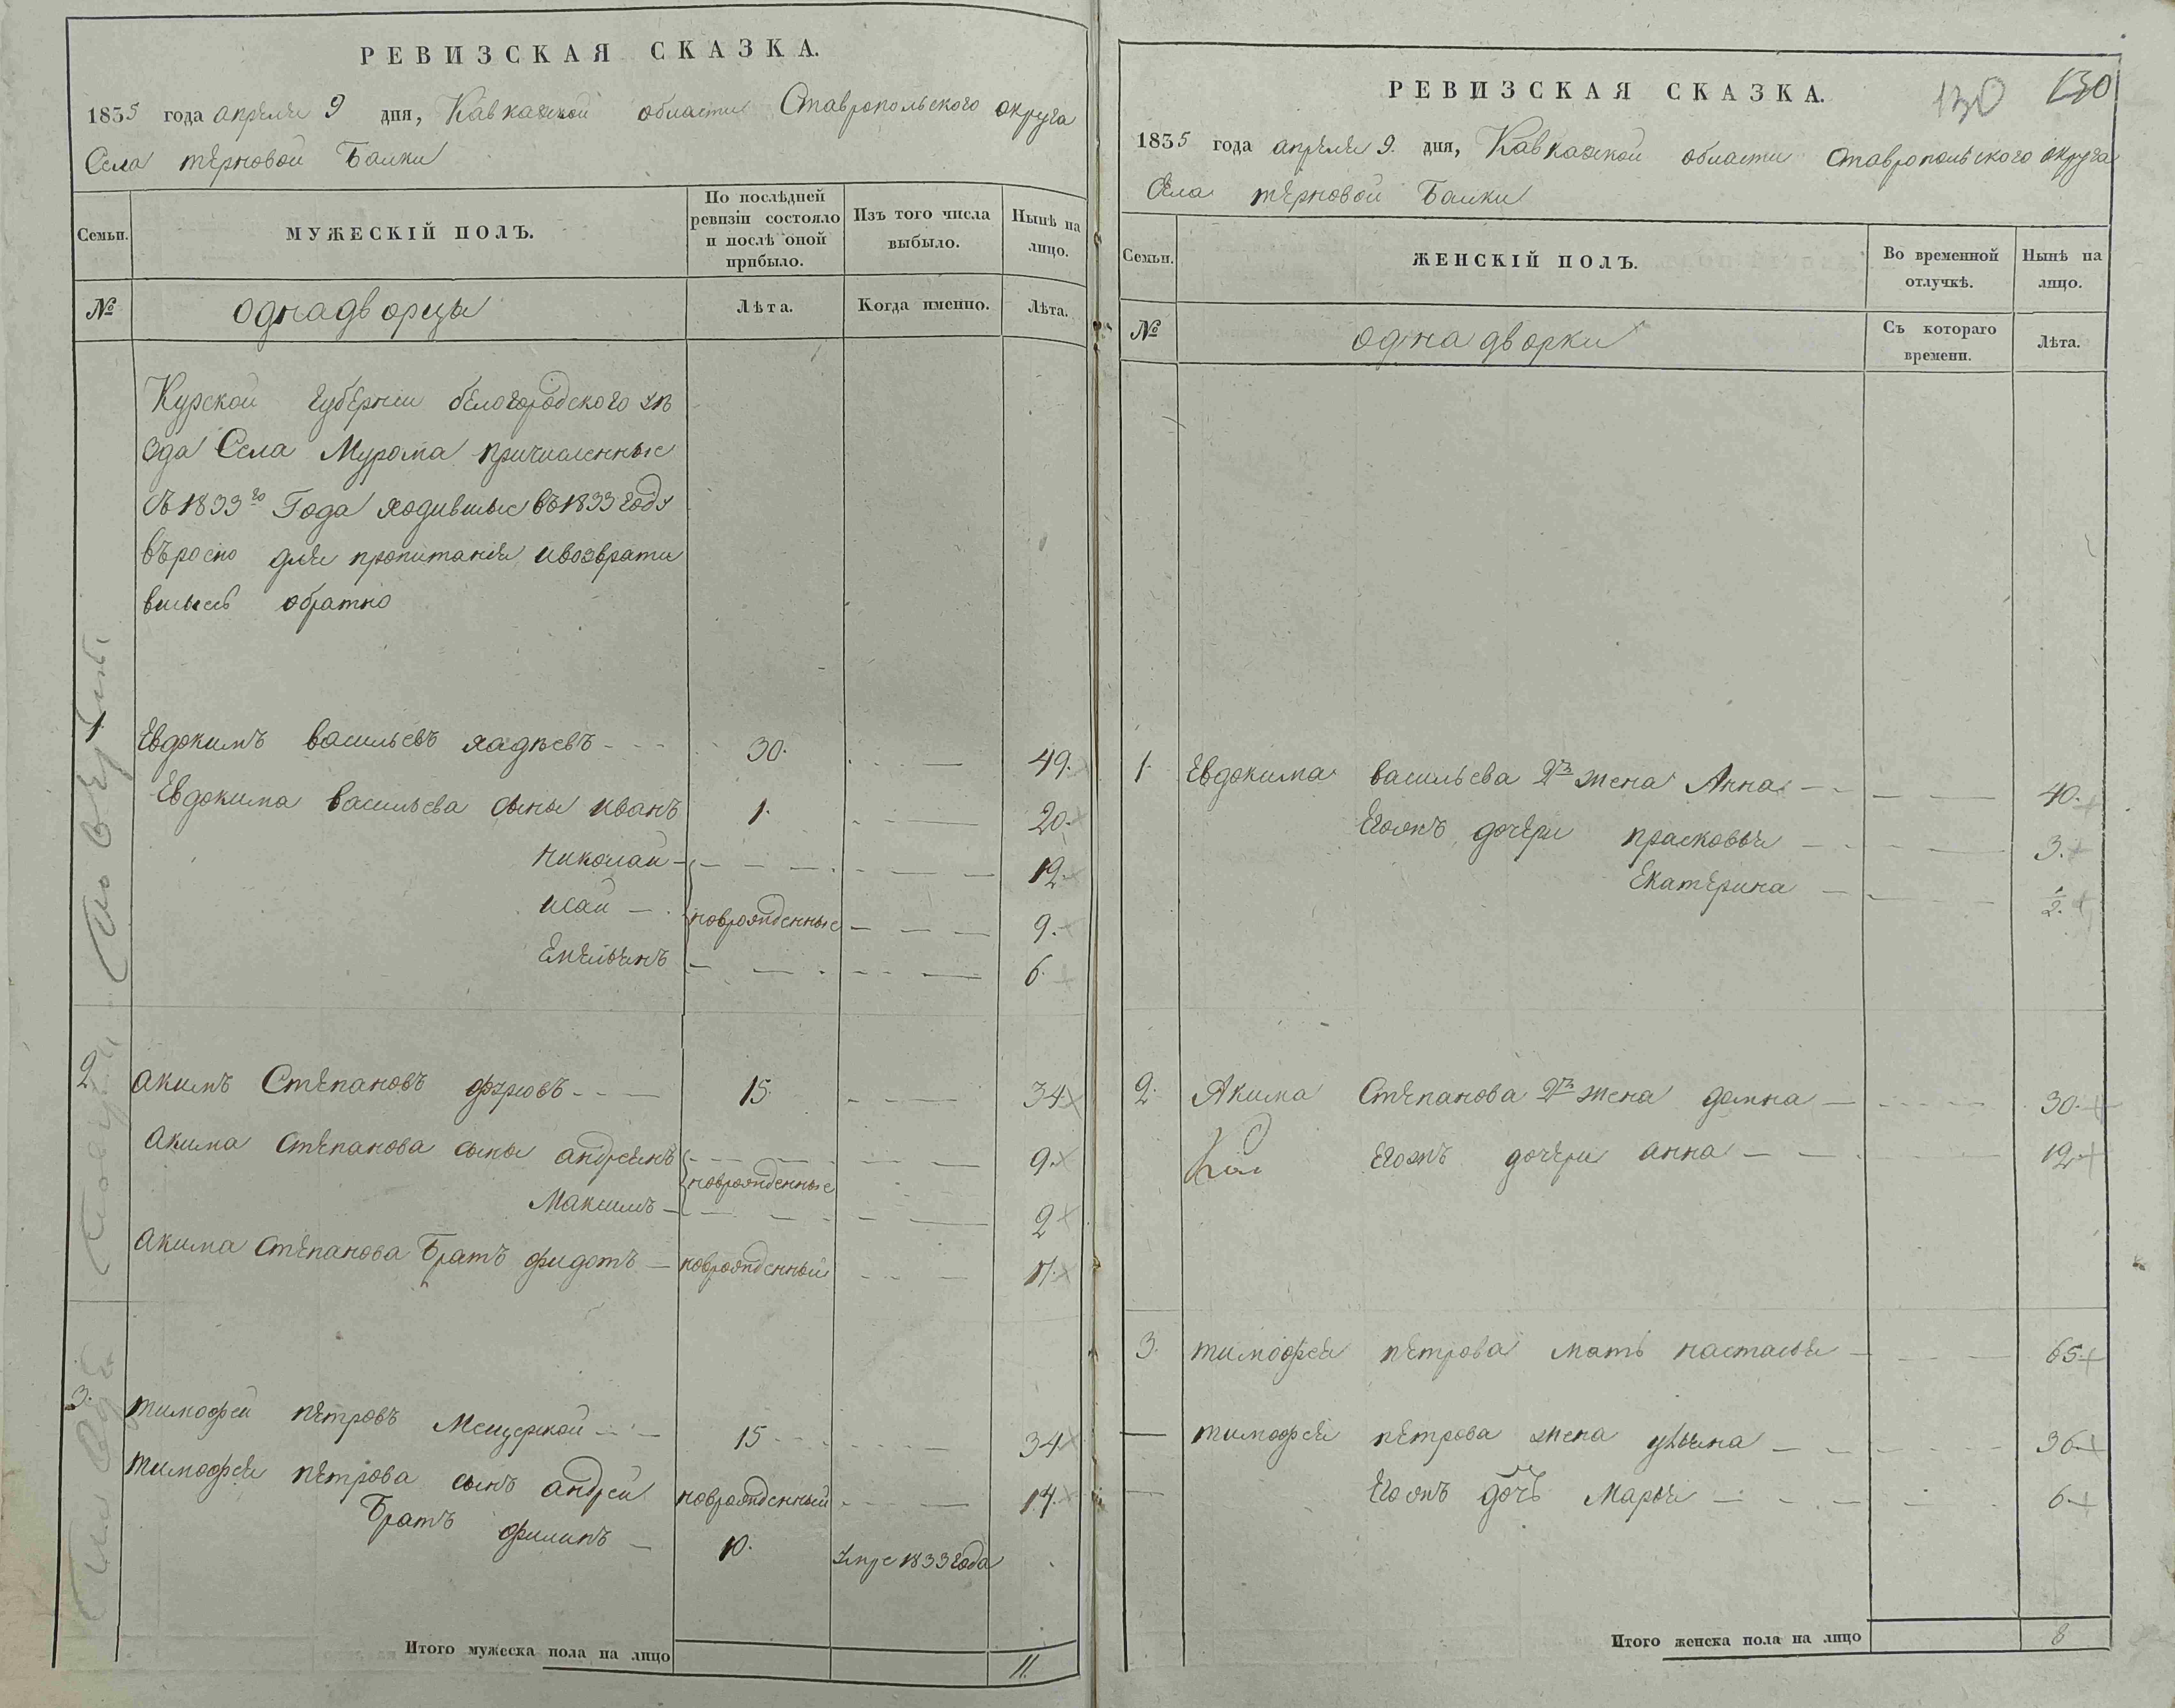 РЕВИЗСКАЯ СКАЗКА.
1835 года апреля 9 дня, Кавказкой области Ставропольского округа
Села терновой Балки
Семьи.
МУЖЕСКІЙ ПОЛЪ.
По послѣдней ревизіи состояло и послѣ оной прибыло.
Изъ того числа выбыло.
Нынѣ на лицо.
№
однадворцы
Лѣта.
Когда именно.
Лѣта.
Курской губернии белогородского уѣ
зда Села Мурома причисленные
съ 1833го Года ходившые въ 1833 году
въросію для пропитанія ивозврати
вшыесь обратно
1 Евдокимъ васильевъ 30. 49.
Евдокима васильева сыны иванъ 1. 20.
николай 12.
исаи новрожденные 9.
Емельянъ 6.
2 акимъ Степановъ 15. 34
акима степанова сыны андреянъ 9.
новрожденные
Максимъ 2
акима степанова Братъ фидотъ новрожденный 17.
3. тимофей петровъ Мещерской 15 34
тимофея петрова сынъ андреи новрожденный 14.
Братъ филипъ 10. умре 1833 года
Итого мужеска пола на лицо 11.
РЕВИЗСКАЯ СКАЗКА.
130 130
1835 года апреля 9. дня, Кавказкой области ставропольского округа
Села терновой Балки
Семьи.
ЖЕНСКІЙ ПОЛЪ.
Во временной отлучкѣ.
Нынѣ на лицо.
№
однадворки
Съ котораго времени.
Лѣта.
1. Евдокима васильева 2я жена Анна 40.
Егожъ дочери прасковья 3.
Екатерина ½.
2. Акима Степанова 2я жена домна 30.
Егожъ дочери анна 12
3. тимофея петрова мать настасья 65
тимофея петрова жена ульяна 36
Егожъ дочь Марья 6
Итого женска пола на лицо 8